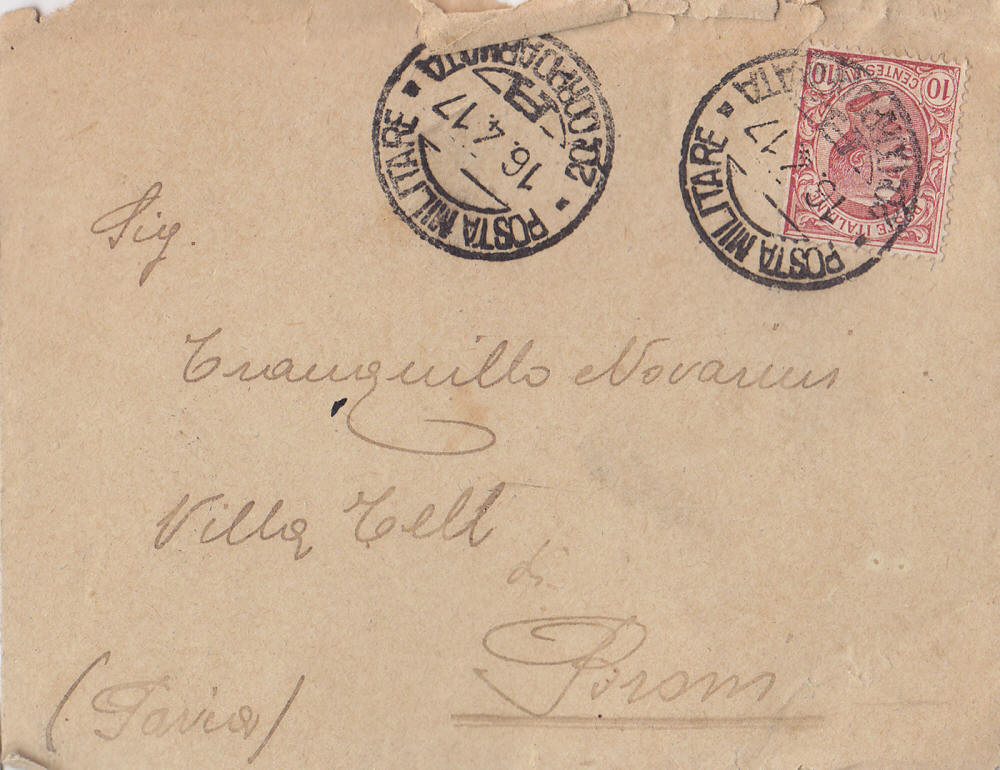 POSTA MILITARE
20° CORPO D'ARMATA
A
16.4.17
POSTA MILITARE
16. 17
10 CENTESIMI 10
POSTE ITALIANE
Sig.
Tranquillo Novarini
Villa Tell
di
Broni
(Pavia)